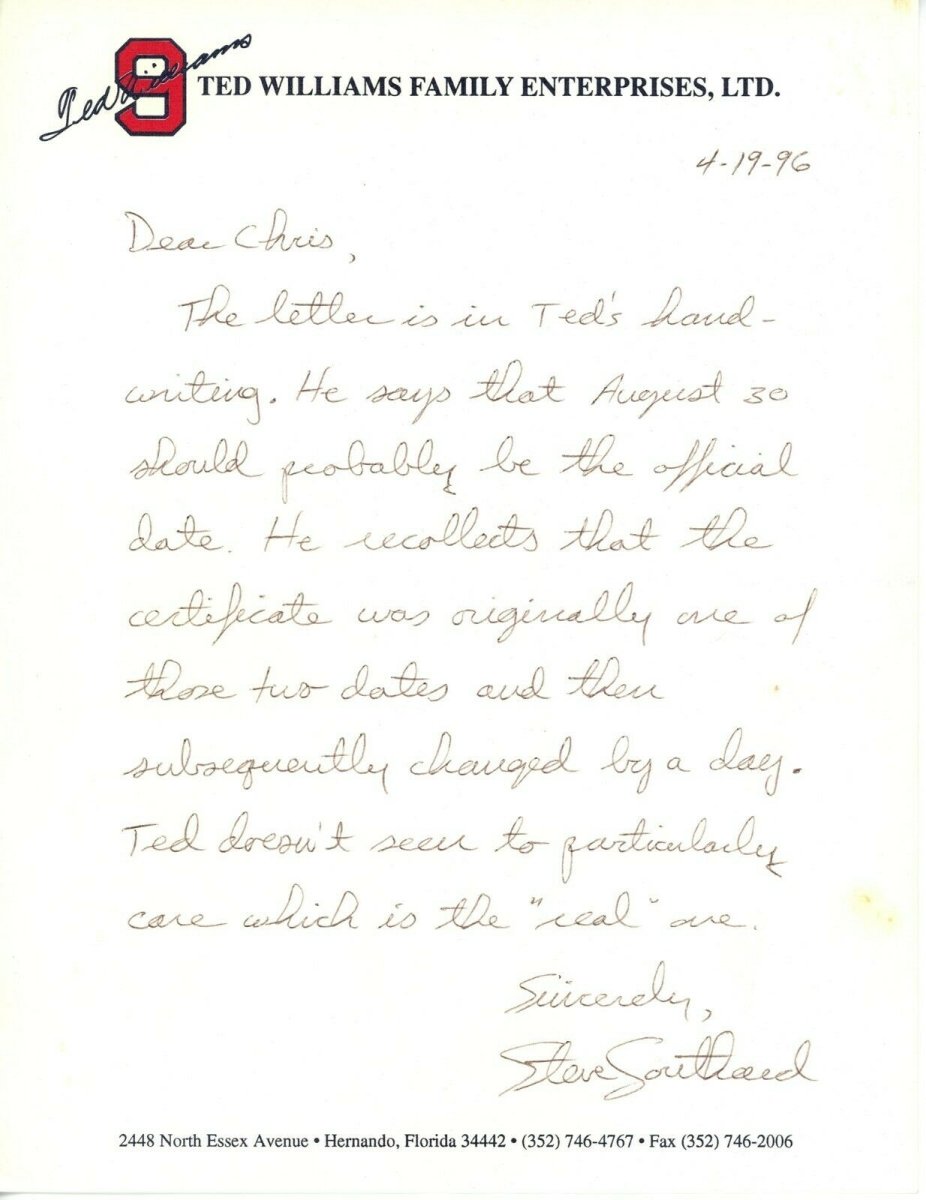 Ted Williams
9
TED WILLIAMS FAMILY ENTERPRISES, LTD.
4-19-96
Dear Chris,
The letter is in Ted's hand-
writing. He says that August 30
should probably be the official
date. He recollects that the
certificate was originally one of
those two dates and then
subsequently changed by a day.
Ted doesn't seem to particularly
care which is the "real" one.
Sincerely,
Steve Southard
2448 North Essex Avenue • Hernando, Florida 34442 • (352) 746-4767 • Fax (352) 746-2006